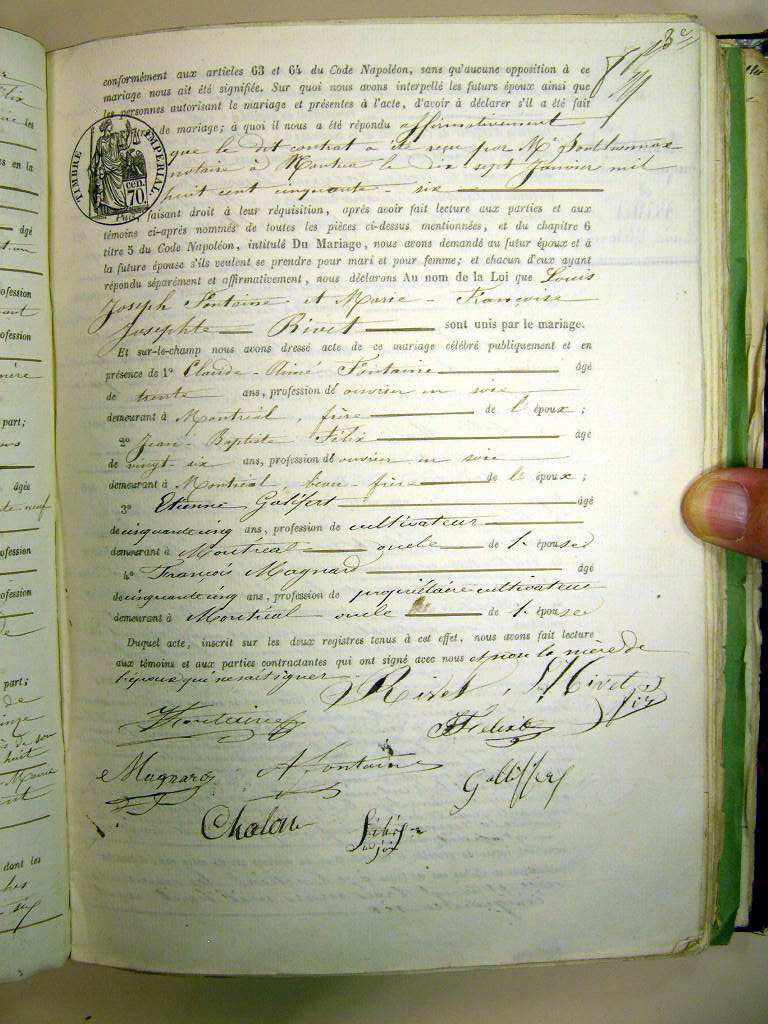 3e
conformément aux articles 63 et 64 du Code Napoléon, sans qu'aucune opposition à ce
mariage nous ait été signifiée. Sur quoi nous avons interpellé les futurs époux ainsi que
les personnes autorisant le mariage et présentes à l'acte, d'avoir à déclarer s'il a été fait
de mariage; à quoi il nous a été répondu affirmativement
que le dit contrat a été reçu par Me
notaire à le dix-sept Janvier mil
huit cent cinquante-six
TIMBRE IMPERIAL
70 cen.
faisant droit à leur réquisition, après avoir fait lecture aux parties et aux
témoins ci-après nommés de toutes les pièces ci-dessus mentionnées, et du chapitre 6
titre 5 du Code Napoléon, intitulé Du Mariage, nous avons demandé au futur époux et à
la future épouse s'ils veulent se prendre pour mari et pour femme; et chacun d'eux ayant
répondu séparément et affirmativement, nous déclarons Au nom de la Loi que Louis
Joseph Fontaine et Marie-Françoise
Josephte Rivet sont unis par le mariage.
Et sur-le-champ nous avons dressé acte de ce mariage célébré publiquement et en
présence de 1º Claude-Aimé Fontaine âgé
de trente ans, profession de ouvrier en soie
demeurant à Montréal, frère de l'époux;
2º Jean-Baptiste Félix âgé
de vingt-six ans, profession de ouvrier en soie
demeurant à Montréal, beau-frère de l'époux;
3º Etienne Galifert âgé
de cinquante cinq ans, profession de cultivateur
demeurant à Montréal oncle de l'épouse
4º François Magnard âgé
de cinquante cinq ans, profession de propriétaire cultivateur
demeurant à Montréal oncle de l'épouse
Duquel acte, inscrit sur les deux registres tenus à cet effet, nous avons fait lecture
aux témoins et aux parties contractantes qui ont signé avec nous et non la mère de
l'époux qui ne sait signer
Rivet Rivet
Fontaine Felix
Magnard A Fontaine
Chalon